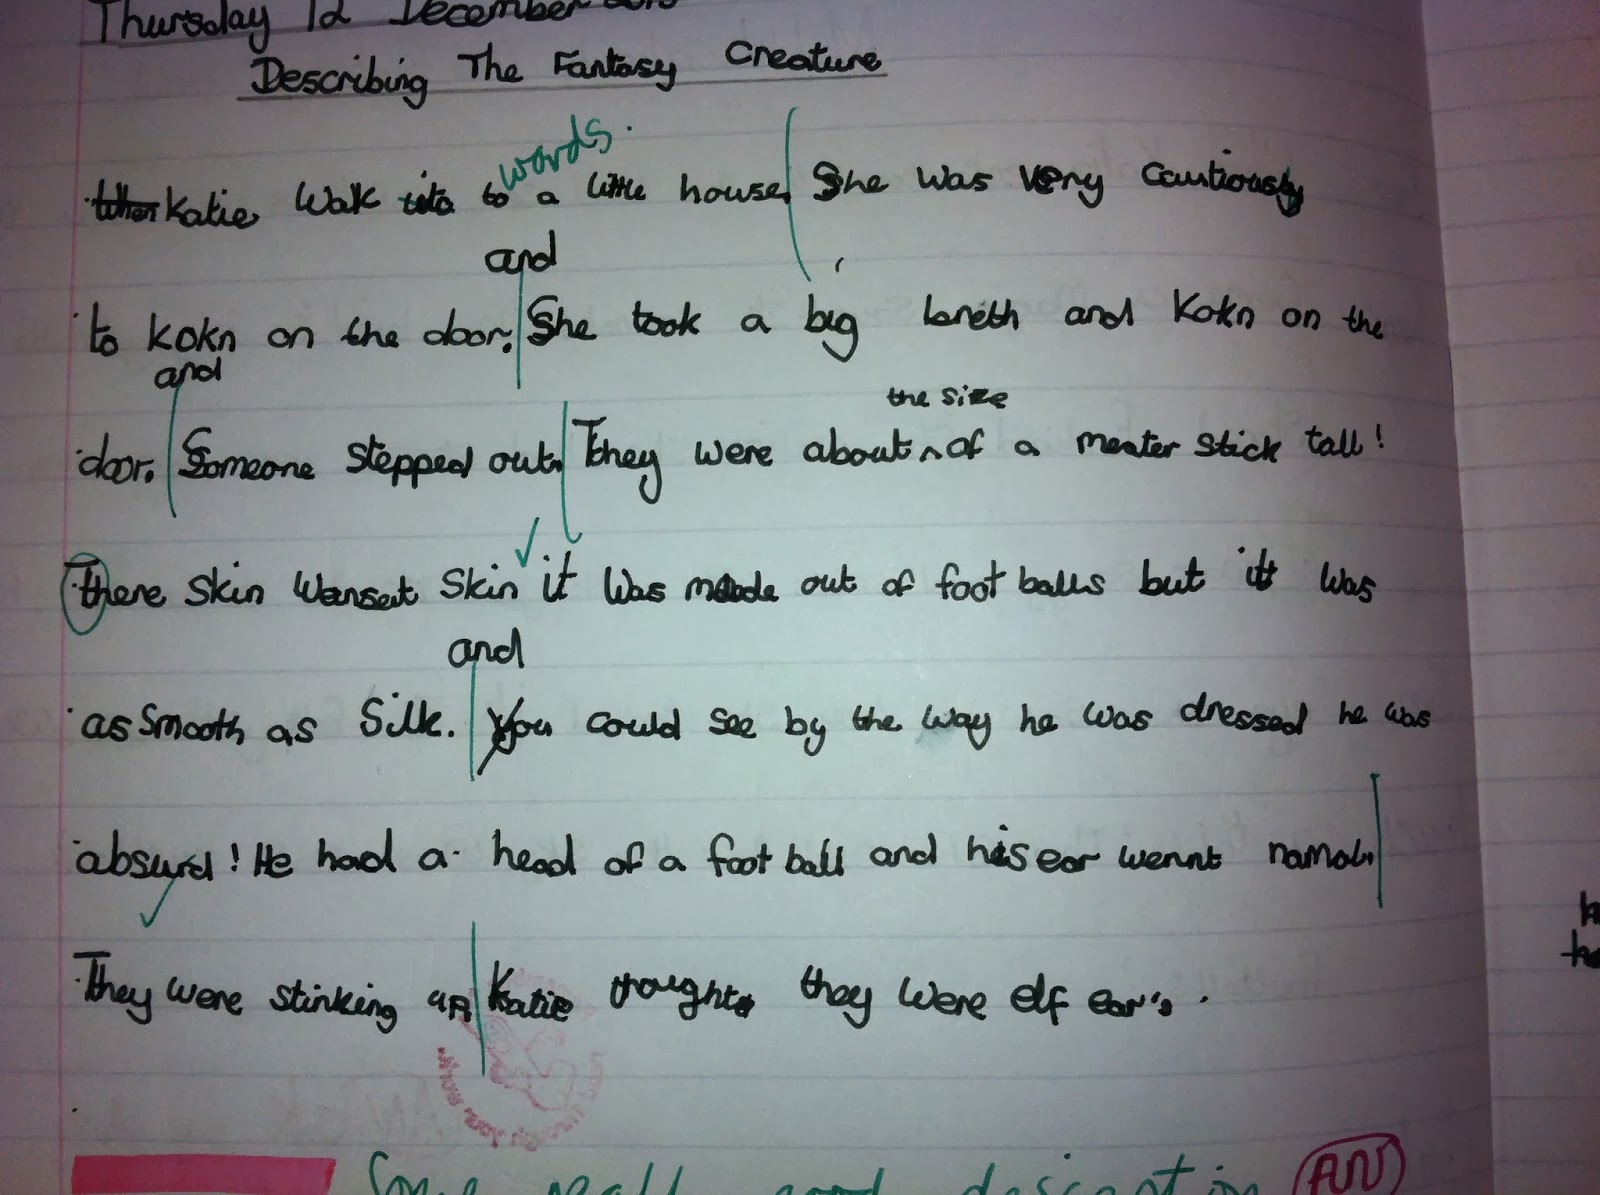 Thursday 12 December
Describing The Fantasy Creature
words.
Katie Walk to a little house. She was very cautiously
and
to kokn on the door. She took a big breth and kokn on the
and
the size
door. Someone stepped out. They were about of a meater stick tall!
There skin wansent skin it was made out of foot balls but it was
and
as smooth as silk. You could see by the way he was dressed he was
absurd! He had a head of a foot ball and his ear wennt namol.
They were stinking up Katie thought they were elf ear's.
Some really good description